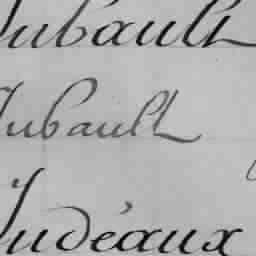 Jubault
Jubault
Judéaux